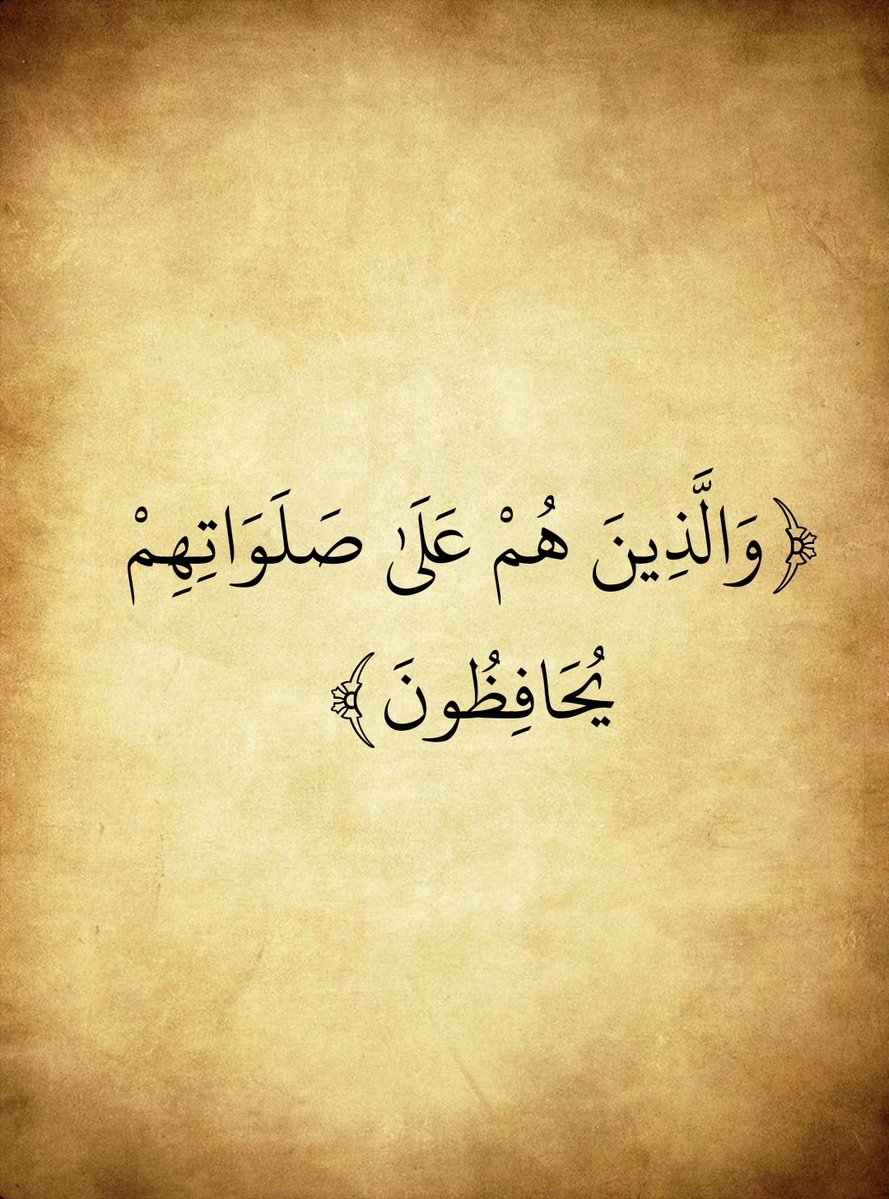 ﴿وَالَّذِينَ هُمْ عَلَىٰ صَلَوَاتِهِمْ
يُحَافِظُونَ﴾